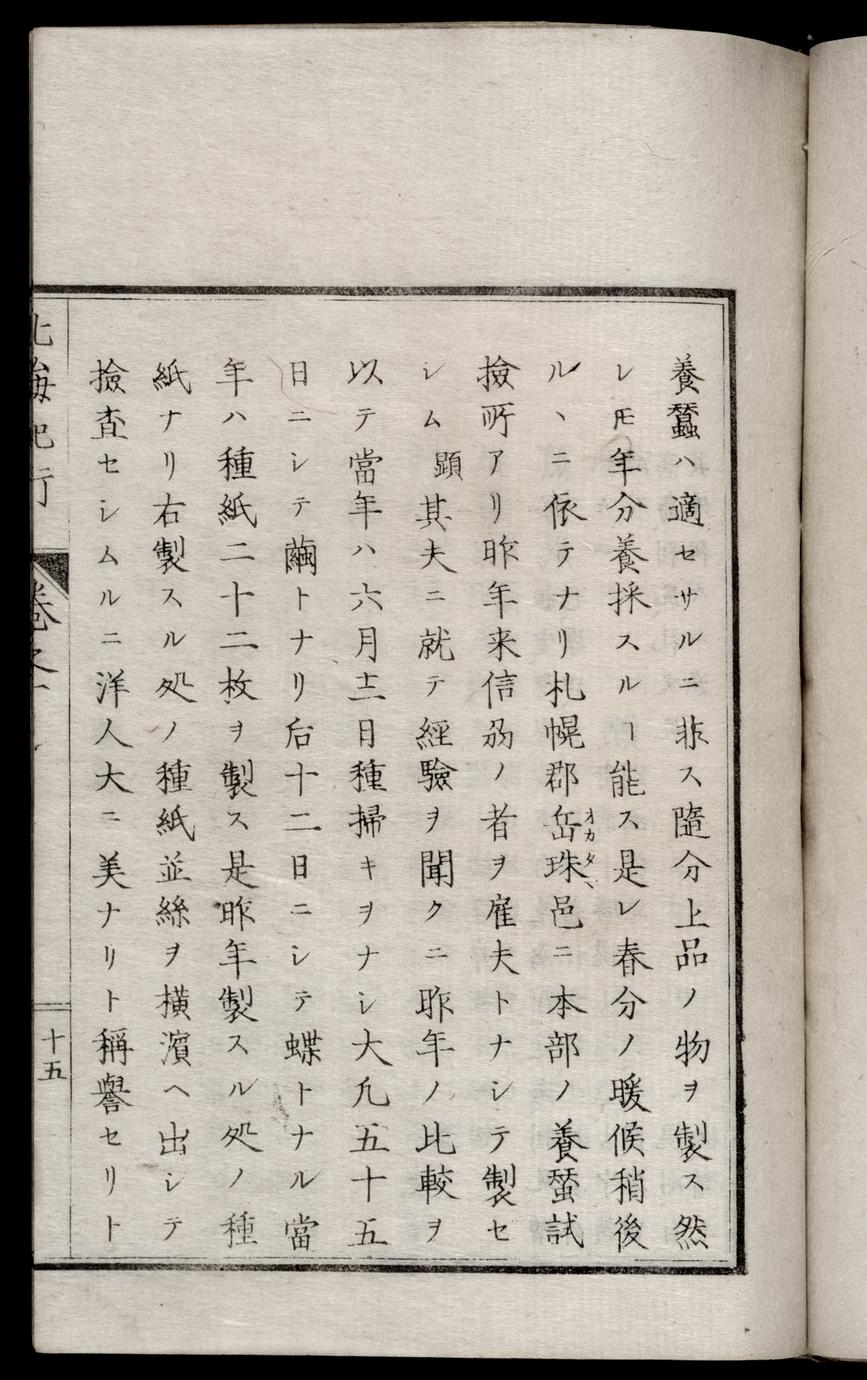 養蠶ハ適セサルニ非ス隨分上品ノ物ヲ製ス然
レ𪜈年分養採スルヿ能ス是レ春分ノ暖候稍後
ルヽニ依テナリ札幌郡岳珠邑ニ本部ノ養蚕試
オカダマ
撿所アリ昨年来信刕ノ者ヲ雇夫トナシテ製セ
シム顕其夫ニ就テ經驗ヲ聞クニ昨年ノ比較ヲ
以テ當年ハ六月十二日種掃キヲナシ大凡五十五
日ニシテ繭トナリ后十二日ニシテ蝶トナル當
年ハ種紙二十二枚ヲ製ス是昨年製スル処ノ種
紙ナリ右製スル処ノ種紙並絲ヲ横濵ヘ出シテ
撿査セシムルニ洋人大ニ美ナリト稱譽セリト
北海紀行
卷之
十五